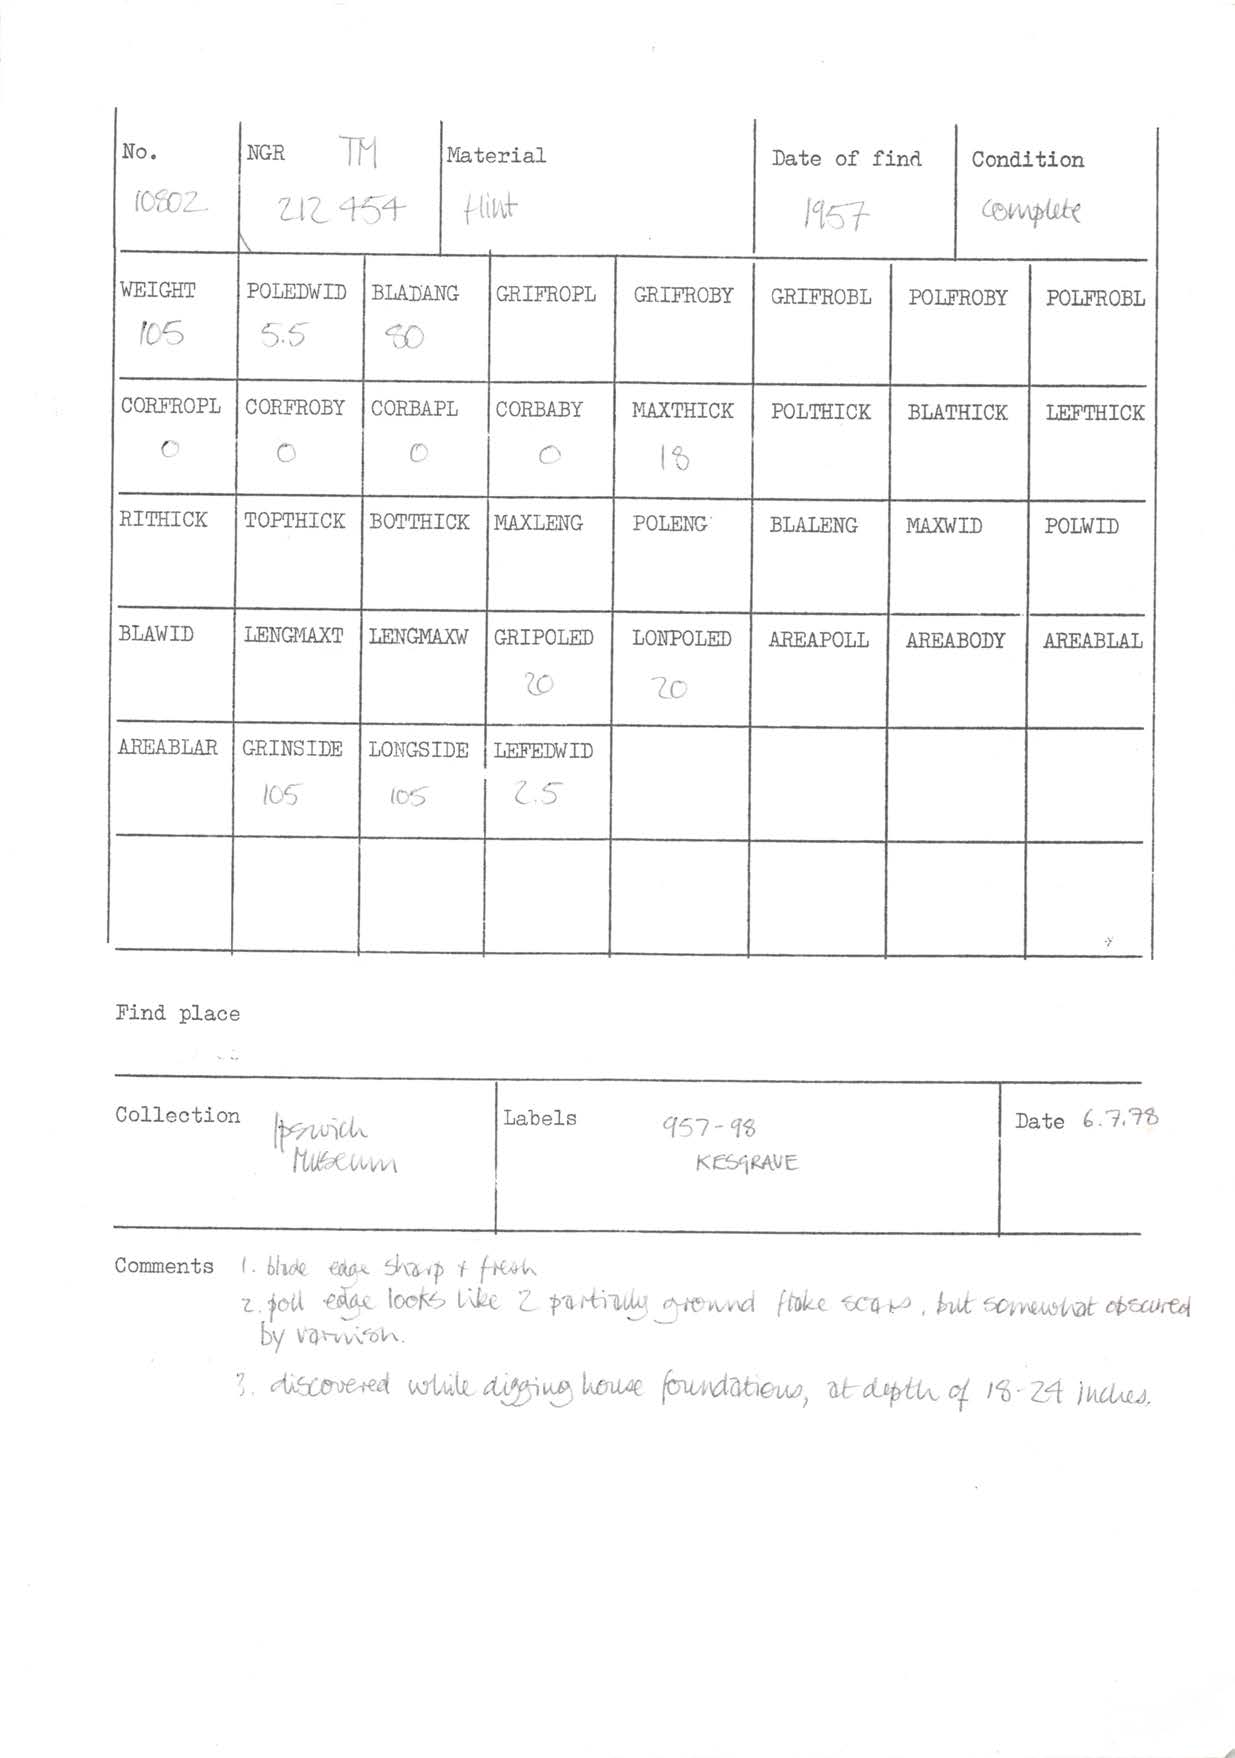 No. NGR TM Material Date of find Condition
10802 212 454 flint 1957 complete
WEIGHT POLEDWID BLADANG GRIFROPL GRIFROBY GRIFROBL POLFROBY POLFROBL
105 5.5 80
CORFROPL CORFROBY CORBAPL CORBABY MAXTHICK POLTHICK BLATHICK LEFTHICK
0 0 0 0 18
RITHICK TOPTHICK BOTTHICK MAXLENG POLENG BLALENG MAXWID POLWID
BLAWID LENGMAXT LENGMAXW GRIPOLED LONPOLED AREAPOLL AREABODY AREABLAL
20 20
AREABLAR GRINSIDE LONGSIDE LEFEDWID
105 105 2.5
Find place
Collection Ipswich Labels 957-98 Date 6.7.78
Museum KESGRAVE
Comments 1. blade edge sharp + fresh
2. poll edge looks like 2 partially ground flake scars, but somewhat obscured
by varnish.
3. discovered while digging house foundations, at depth of 18-24 inches.